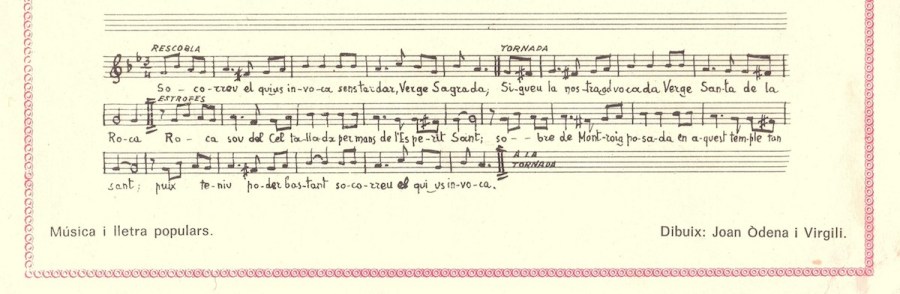 RESCOBLA TORNADA
So - co-rreu el quius in-vo-ca sens tardar, Verge Sagrada; Si-gueu la nos-tra advocada Verge San-ta de la
ESTROFES
Ro-ca Ro - ca sou del Cel ta-llada per mans de l'Es pe-rit Sant; so - bre de Mont-roig po-sa-da en a-quest tem-ple tan
A LA
TORNADA
sant; puix te-niu po-der bas-tant so-co-rreu el qui us in-vo-ca.
Música i lletra populars. Dibuix: Joan Òdena i Virgili.